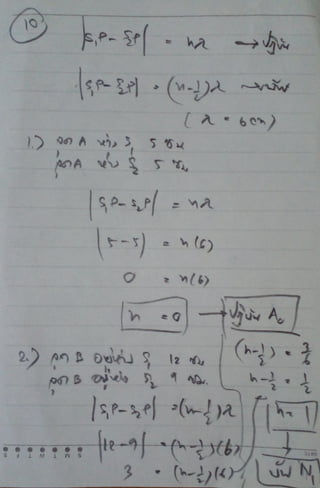 10
|S₁P - S₂P| = nλ → ปฏิบัพ
|S₁P - S₂P| = (n - ½)λ → บัพ
(λ = 6 cm)
1.) จุด A ห่าง S₁ 5 ซม.
จุด A ห่าง S₂ 5 ซม.
|S₁P - S₂P| = nλ
|5 - 5| = n(6)
0 = n(6)
n = 0 → ปฏิบัพ A₀
2.) จุด B อยู่ห่าง S₁ 12 ซม.
จุด B อยู่ห่าง S₂ 9 ซม.
|S₁P - S₂P| = (n - ½)λ
|12 - 9| = (n - ½)(6)
3 = (n - ½)(6)
(n - ½) = 3/6
n - ½ = ½
n = 1
บัพ N₁